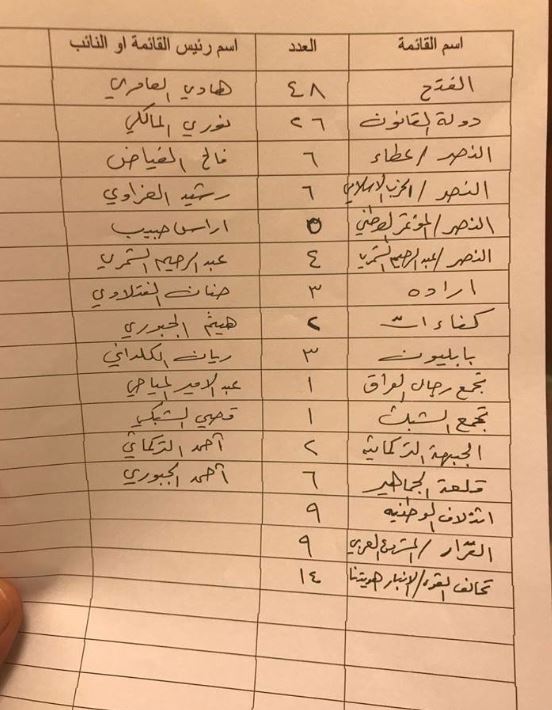 اسم القائمة العدد اسم رئيس القائمة او النائب
الفتح ٤٨ هادي العامري
دولة القانون ٢٦ نوري المالكي
النصر / عطاء ٦ فالح الفياض
النصر / الحزب الاسلامي ٦ رشيد العزاوي
النصر / المؤتمر الوطني ٥ اراس حبيب
النصر / عبد الرحيم الشمري ٤ عبد الرحيم الشمري
ارادة ٣ حنان الفتلاوي
كفاءات ٢ هيثم الجبوري
بابليون ٣ ريان الكلداني
تجمع رجال العراق ١ عبد الامير المياحي
تجمع الشبك ١ قصي الشبكي
الجبهة التركمانية ٢ أحمد التركماني
قلعة الجماهير ٦ أحمد الجبوري
ائتلاف الوطنيه ٩
القرار / المشروع العربي ٩
تحالف القوى / الانبار هويتنا ١٤